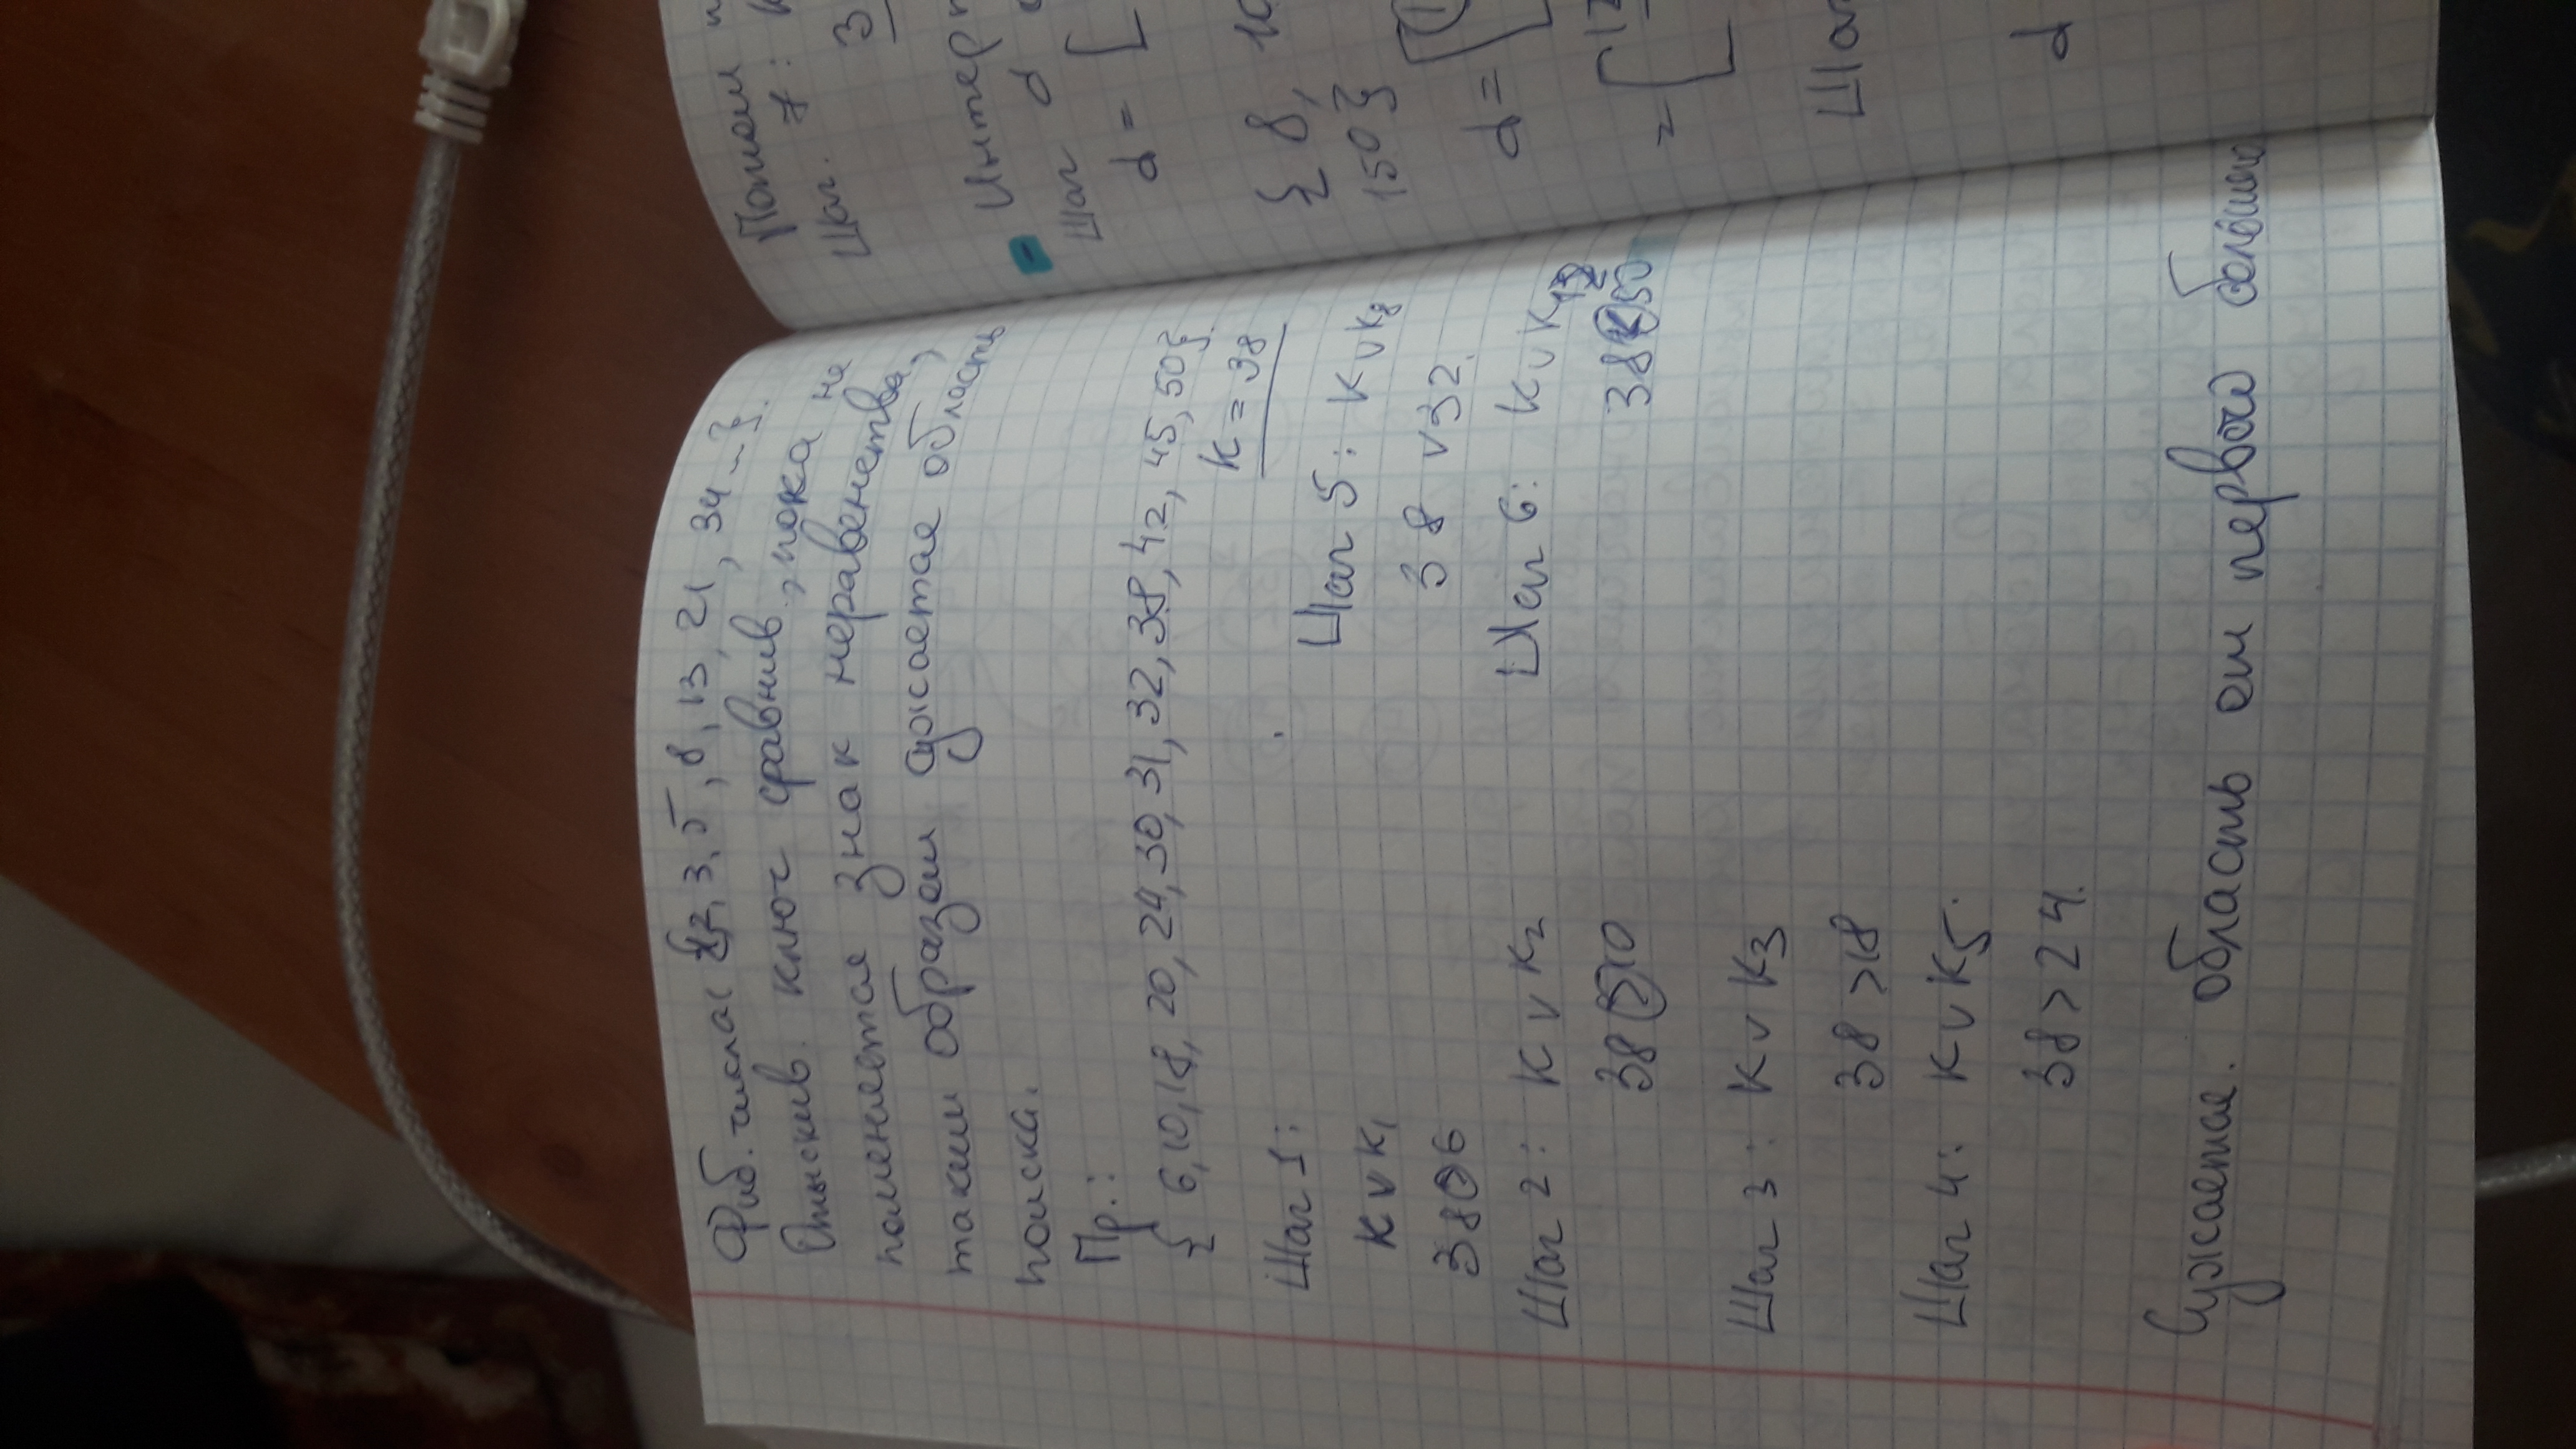 Фиб. числа { 1,2, 3, 5, 8, 13, 21, 34 ... }.
Отыскив. ключ сравнив., пока не
поменяется знак неравенства,
таким образом сужается область
поиска.
Пр.:
{ 6, 10, 18, 20, 24, 30, 31, 32, 38, 42, 45, 50}.
K = 38
Шаг 1:
K v K1
38 > 6
Шаг 2: K v K2
38 > 10
Шаг 3: K v K3
38 > 18
Шаг 4: K v K5.
38 > 24.
Шаг 5: K v K8
38 v 32.
Шаг 6: K v K12
38 < 50
Сужается. область от первого большего
Потом
Шаг. 7:
3
- Интер
Шаг d
d = [
{ 8, 10
150}
d = [
= [ 12
Шаг
d